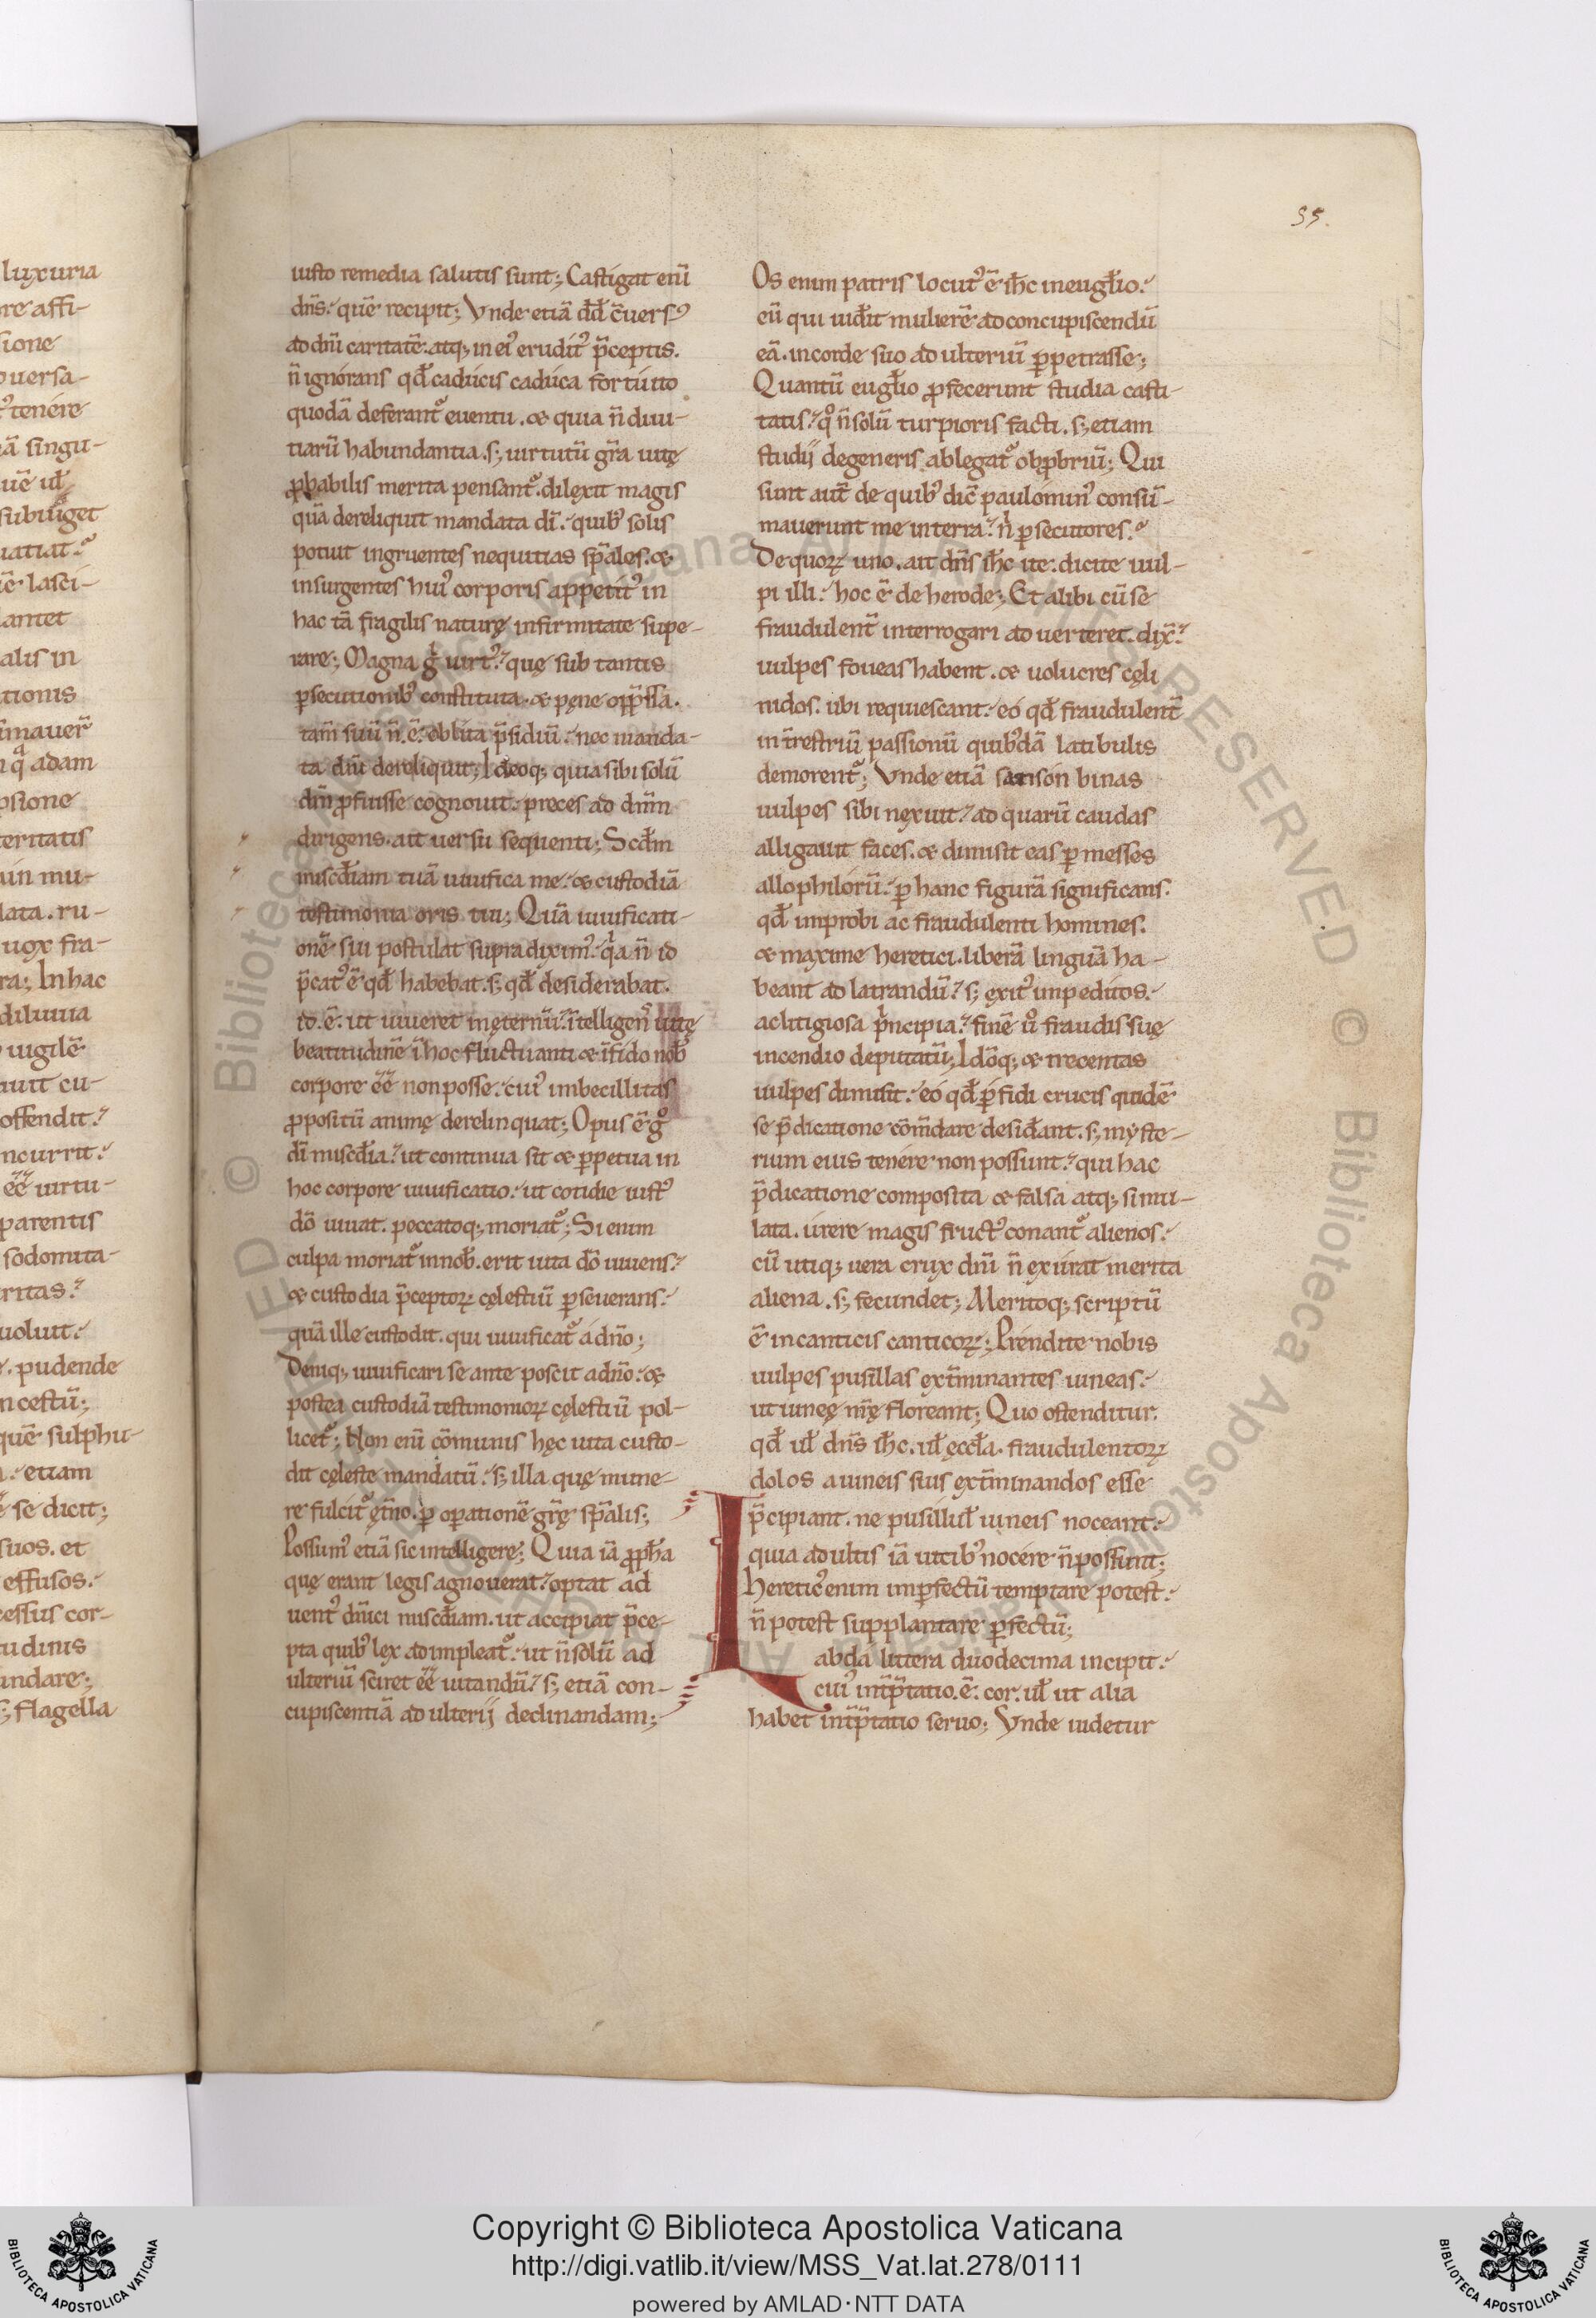 55.
luxuria
re affi-
sione
uersa-
tenére
ea singu-
subiuget
uatiat
e lasci-
antet
alis in
tionis
imauer̄
q̄ adam
psione
teritatis
ain mu-
lata. ru-
uox fra-
ra; In hac
diluuia
uigilē
auit cu-
offendit.
ncurrit.
eē uirtu-
parentis
sodomita-
ritas.
uoluit.
. pudende
ncestū;
quē sulphu-
. etiam
se dicit;
suos. et
effusos.
cessus cor-
tudinis
undare;
; flagella
iusto remedia salutis sunt; Castigat eni᷑
dn̄s. quē recipit; Vnde etiā dđ c̄uersꝰ
ad dn̄i caritatē. atq; in eiꝰ eruditꝰ p̄ceptis.
n̄ ignórans qđ cadúcis cadúca fortúito
quodā deferant᷑ euentu. & quia n̄ diui-
tiarū habundantia. s; uirtutū gr̄a uitę
ꝓbabilis merita pensant᷑. dilexit magis
quā dereliquit mandata dī. quibꝰ solis
potuit ingruentes nequitias sp̄ales. &
insurgentes huiꝰ corporis appetitꝰ in
hac tā fragilis naturę infirmitate supe-
rare; Magna g̊ uirtꝰ. quę sub tantis
ꝑsecutionibꝰ constituta. & pęne opp̄ssa.
tam̄ suū n̄. ē. oblita p̄sidiū. nec manda-
ta dn̄i dereliquit; Ideoq; quia sibi solū
dn̄m ꝓfuisse cognouit. preces ad dn̄m
dirigens. ait uersu sequenti; Scđm
misc̄diam tuā uiuifica me. & custodiā
testimonia oris tui; Quā uiuificati-
onē sui postulat supra diximꝰ. q̊a n̄ id
p̄catꝰ ē qđ habebat. s; qđ desiderabat.
id. ē. ut uiueret inęternū. ītelligenꝰ uitę
beatitudinē ī hoc fluctuanti & īfido nob̄
corpore eē non posse. cuiꝰ imbecillitas
ꝓpositū animę derelinquat; Opus ē g̊
dī misc̄dia. ut continua sit & ꝑpetua in
hoc corpore uiuificatio. ut cotidie iustꝰ
dō uiuat. peccatoq; moriat᷑; Si enim
culpa moriat᷑ in nob̄. erit uita dō uiuens.
& custodia p̄ceptoꝝ cęlestiū ꝑseuerans.
quā ille custodit. qui uiuificat᷑ á dn̄o;
Deniq; uiuificari se ante poscit a dn̄o. &
postea custodiā testimonioꝝ cęlestiū pol-
licet᷑; Non eni᷑ cōmunis hęc uita custo-
dit cęleste mandatū. s; illa quę mune-
re fulcit᷑ ęt̄no. ꝑ oꝑationē gr̄ę sp̄alis;
Possumꝰ etiā sic intelligere; Quia iā ꝓph̄a
quę erant legis agnouerat. optat ad
uentꝰ dn̄ici misc̄diam. ut accipiat p̄ce-
pta quibꝰ lex adimpleat᷑. ut n̄ solū ad
ulteriū sciret eē uitandū. s; etiā con-
cupiscentiā adulterij declinandam;
Os enim patris locutꝰ ē ih̄c in euglio.
eū qui uiđit mulierē ad concupiscendū
eā. in corde suo adulteriū ꝑpetrasse;
Quantū euglio ꝓfecerunt studia casti-
tatis. q̊ n̄ solū turpioris facti. s; etiam
studij degeneris ablegat᷑ obꝓbriū; Qui
sunt aut̄ de quibꝰ dic̄ paulóminꝰ consū-
mauerunt me in terra. n̊ ꝑsecutores.
De quoꝝ uno. ait dn̄s ih̄c ite. dicite uul-
pi illi. hoc ē de herode; Et alibi cū se
fraudulent̄ interrogari aduerteret. dix̄.
uulpes foueas habent. & uolucres cęli
nidos. ubi requiescant. eó qđ fraudulent̄
in t̄restriū passionū quibꝰdā latibulis
demorent᷑; Vnde etiā sansón binas
uulpes sibi nexuit. ad quarū caudas
alligauit faces. & dimisit eas ꝑ messes
allophilórū. ꝑ hanc figurā significans.
qđ improbi ac fraudulenti homines.
& maxime heretici. liberā linguā ha-
beant ad latrandū. s; exitꝰ impeditos.
ac litigiosa p̊ncipia. finē ů fraudis suę
incendio deputatū; Idōq; & trecentas
uulpes dimisit. eó qđ ꝑfidi crucis quidē
se p̄dicatione cōm̄dare desid̄ant. s; myste-
rium eius tenére non possunt. qui hac
p̄dicatione composita & falsa atq; simu-
lata. úrere magis fructꝰ conant᷑ alienos.
cū utiq; uera crux dn̄i n̄ exúrat merita
aliena. s; fecundet; Meritoq; scriptū
ē in canticis canticoꝝ; Prendite nobis
uulpes pusillas ext̄minantes uineas.
ut uineę nr̄ę floreant; Quo ostenditur.
qđ ul̄ dn̄s ih̄c. ul̄ ęccl̄a. fraudulentoꝝ
dolos a uineis suis ext̄minandos esse
p̄cipiant. ne pusilli ul̄ uineis noceant.
quia adultis iā uitibꝰ nocére n̄ possunt;
Hereticꝰ enim imꝑfectū temptare potest.
n̄ potest supplantare ꝑfectū;
Labdá littera duodecima incipit.
cuiꝰ int̄p̄tatio. ē. cor. ul̄ ut alia
habet int̄p̄tatio seruo; Vnde uidetur
© Biblioteca Apostolica Vaticana ALL RIGHTS RESERVED
Copyright © Biblioteca Apostolica Vaticana
http://digi.vatlib.it/view/MSS_Vat.lat.278/0111
powered by AMLAD·NTT DATA
BIBLIOTECA APOSTOLICA VATICANA
BIBLIOTECA APOSTOLICA VATICANA